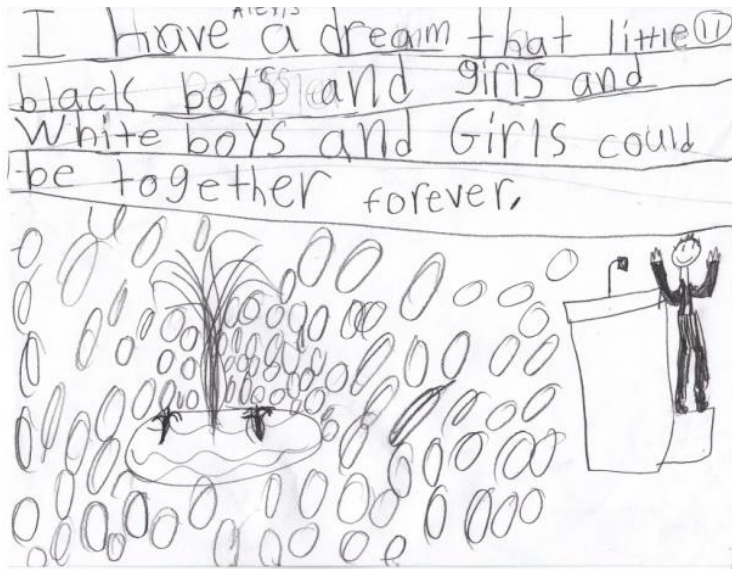 Alexis
I have a dream that little 11
black boys and girls and
White boys and Girls could
be together forever,